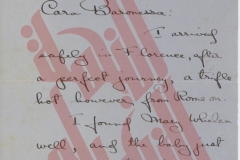 Cara Baronessa:
I arrived
safely in Florence, after
a perfect journey, a trifle
hot however, from Rome on.
I found Mary Whelen
well, and the baby just